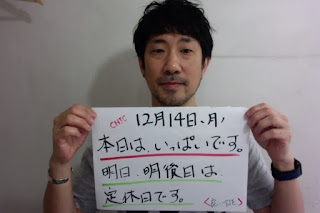 12月14日、月、
本日は、いっぱいです。
明日、明後日は、
定休日です。